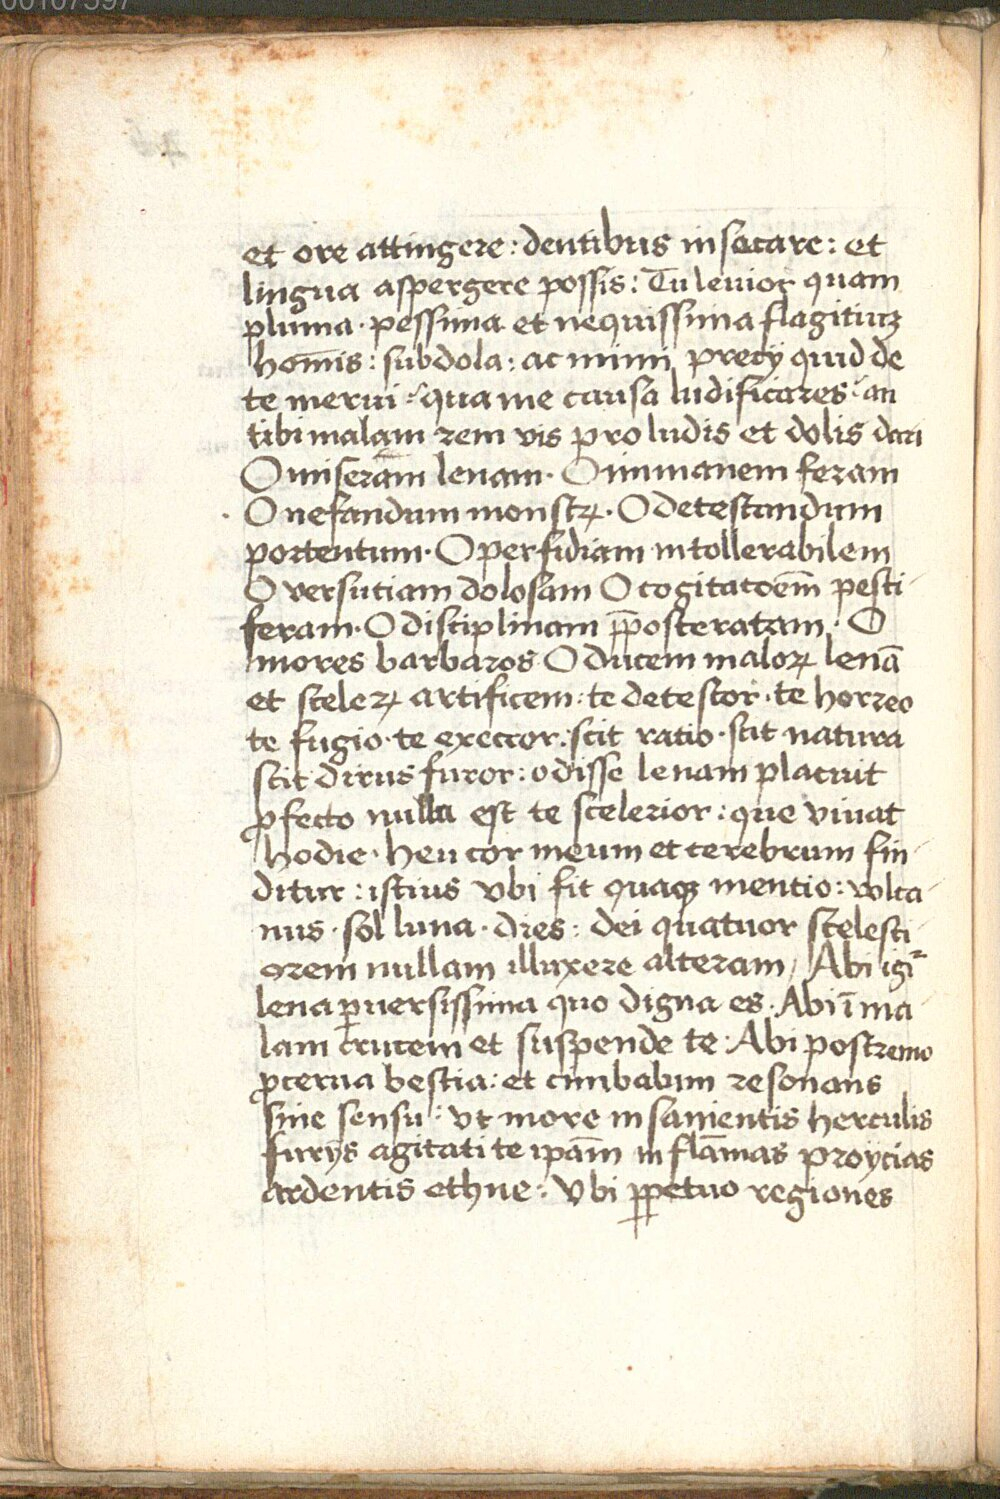 00107597
et ore attingere : dentibus insecare : et
lingua aspergere possis : Tu leuior quam
pluma · pessima et nequissima flagitiuȝ
hom̄is : subdola : ac mimi precij quid de
te merui : qua me causa ludificares : an
tibi malam rem vis pro ludis et dolis dari
O miseram lenam · O immanem feram
O nefandum monstrꝝ · O detestandum
portentum · O perfidiam intollerabilem
O versutiam dolosam O cogitatoēm pesti-
feram · O disciplinam p̄posteratam · O
mores barbaros O ducem maloꝝ lenā
et sceleꝝ artificem : te detestor · te horreo
te fugio · te execror : scit ratio · scit natura
scit dirus furor : odisse lenam placuit
ꝓfecto nulla est te scelerior : que viuat
hodie · heu cor meum et cerebrum fin-
ditur : istius vbi fit quaqȝ mentio : vulca-
nus · sol luna · dies : dei quatuor scelesti-
orem nullam illuxere alteram / Abi igiᷣ
lena ꝑuersissima quo digna es · Abi ī ma-
lam crucem et suspende te : Abi postremo
ꝓterua bestia : et cimbabum resonans
sine sensu : vt more insanientis herculis
furijs agitati te ip̄am in flāmas proycias
ardentis ethne : Vbi ꝑpetuo regiones